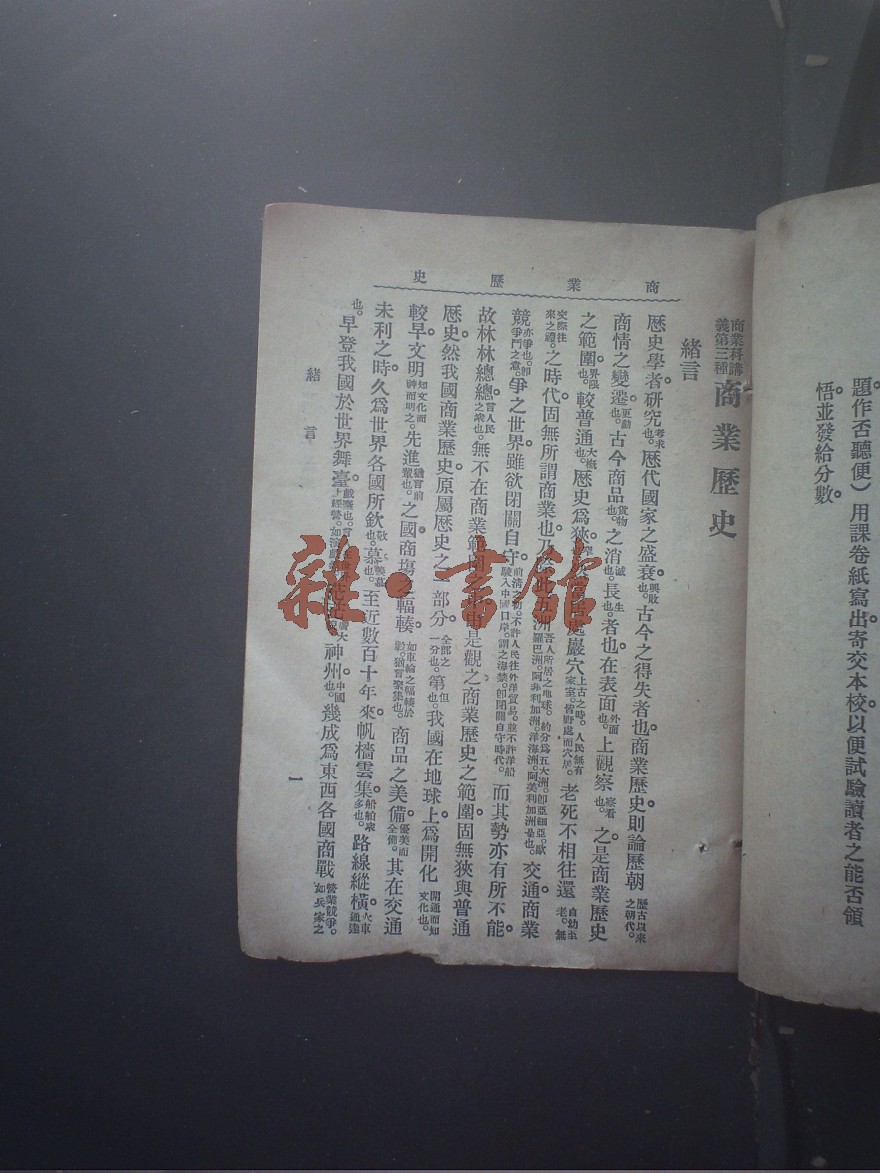 題作否聽便）用課卷紙寫出。寄交本校。以便試驗讀者之能否領
悟。並發給分數。
商業歷史
商業科講義第三種 商業歷史
緒言
歷史學者。研究考求也。歷代國家之盛衰興敗也。古今之得失者也。商業歷史。則論歷朝歷古以來之朝代。
商情之變遷更動也。古今商品貨物也。之消滅也。長生也。者也。在表面外面也。上觀察察看也。之。是商業歷史
之範圍界限也。較普通大槪也。歷史爲狹。居處巖穴上古之時。人民無有家室。皆野處而穴居。老死不相往還自幼至老。無
交際往來之禮。之時代。固無所謂商業也。乃五洲吾人所居之地球。約分爲五大洲。卽亞細亞。歐羅巴洲。阿非利加洲。洋海洲。阿美利加洲是也。交通。商業
競亦爭也。卽爭鬥之意。爭之世界。雖欲閉關自守前淸之初。不許人民往外洋貿易。並不許洋船駛入中國口岸。謂之海禁。卽閉關自守時代。而其勢亦有所不能。
故林林總總言人民之衆也。無不在商業範是觀之。商業歷史之範圍。固無狹與普通
歷史。然我國商業歷史。原屬歷史之一部分全部之一分也。第但也。我國在地球上。爲開化開通而知文化也。
較早。文明知文化而神而明之。先進猶言前輩也。之國。商塲之輻輳如車輪之輻輳於轂。猶言聚集也。商品之美備優美而全備。其在交通
未利之時。久爲世界各國所欽敬也。慕也。至近數百十年來。帆檣雲集船舶衆多也。路線縱橫火車通達
也。早登我國於世界舞臺。神州中國也。幾成爲東西各國商戰營業競爭。如兵家之
緒言
一
雜·書館